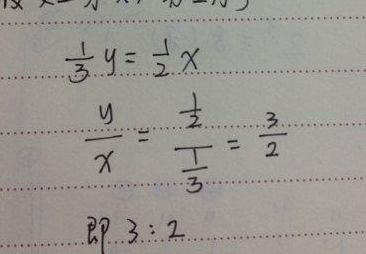 1/3 y = 1/2 x
y/x = (1/2)/(1/3) = 3/2
即 3:2